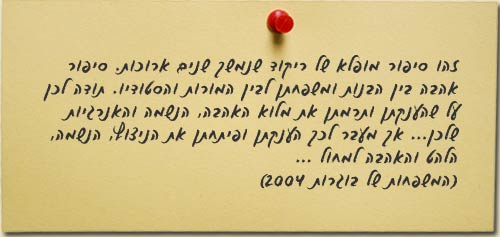 זהו סיפור מופלא של ריקוד שנמשך שנים ארוכות. סיפור
אהבה בין הבנות ומשפחתן לבין המורות והסטודיו. תודה לכן
על שהענקתן ותרמתן את מלוא האהבה, הנשמה והאנרגיות
שלכן... אך מעבר לכך הענקתן ופיתחתן את הניצוץ, הנשמה,
הלהט והאהבה למחול ...
(המשפחות של בוגרות 2004)